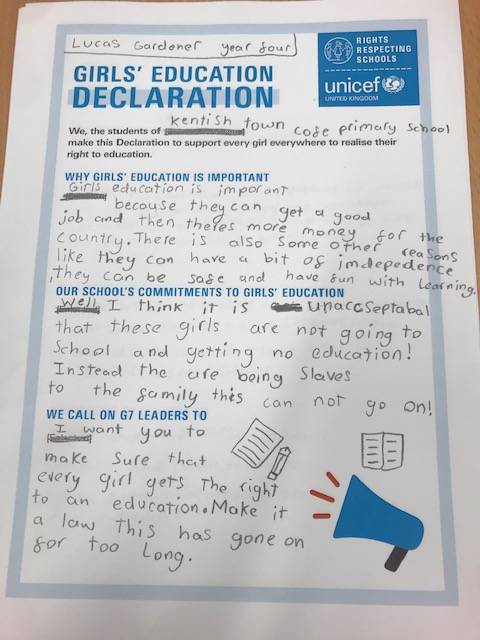 Lucas Gardener year four
RIGHTS
RESPECTING
SCHOOLS
unicef
UNITED KINGDOM
GIRLS' EDUCATION
DECLARATION
Kentish town cofe primary school
We, the students of
make this Declaration to support every girl everywhere to realise their
right to education.
WHY GIRLS' EDUCATION IS IMPORTANT
Girls education is imporant
because they can get a good
job and then theres more money for the
country. There is also some other reasons
like they can have a bit of imdepedence
, they can be safe and have fun with learning.
OUR SCHOOL'S COMMITMENTS TO GIRLS' EDUCATION
Well I think it is unaccseptabal
that these girls are not going to
School and getting no education!
Instead the are being slaves
to the family this can not go on!
WE CALL ON G7 LEADERS TO
I want you to
make sure that
every girl gets the right
to an education. Make it
a law this has gone on
for too long.